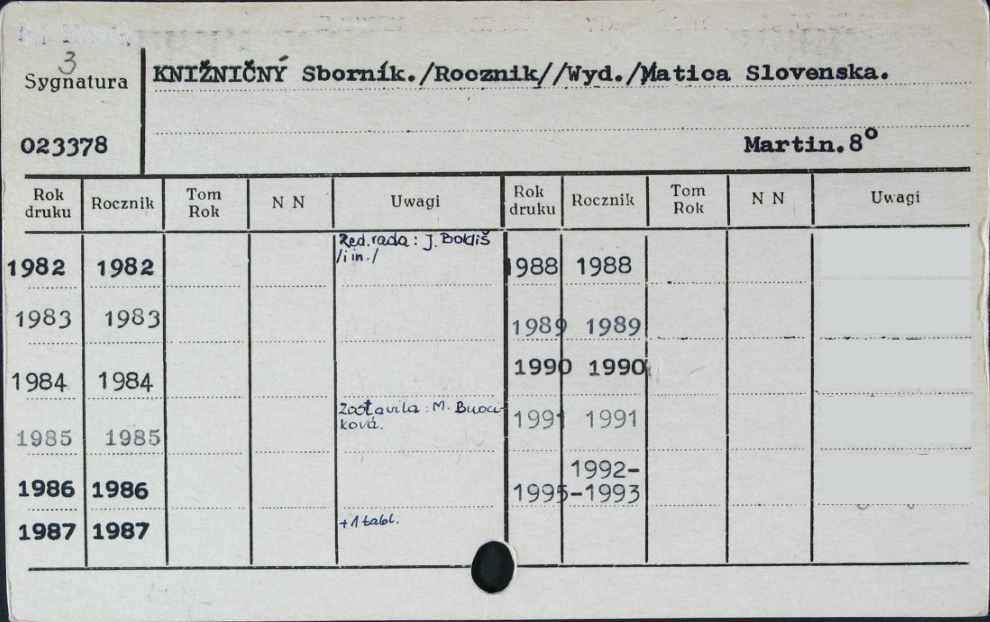 3
Sygnatura
KNIŽNIČNÝ Sborník./Rocznik//Wyd./Matica Slovenska.
023378
Martin.8°
Rok druku Rocznik Tom Rok N N Uwagi Rok druku Rocznik Tom Rok N N Uwagi
Red. rada: J. Boldiš
/i in./
1982 1982 1988 1988
1983 1983 1989 1989
1984 1984 1990 1990
Zostavila: M.
ková.
1985 1985 1991 1991
1992-
1986 1986 1995 -1993
1987 1987 +1 tabl.